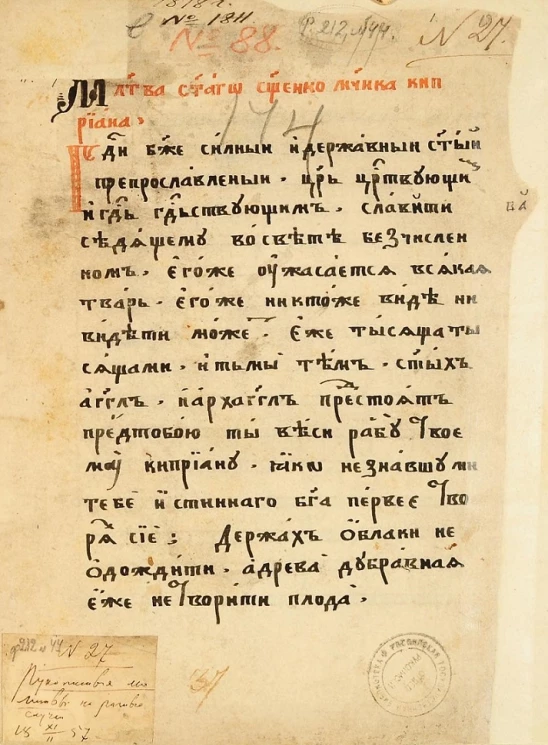 1818г.
№ 1811.
№ 88.
Ф. 212, №44.
N 27.
Млт҃ва ст҃агѡ сщ҃енно мч҃ника кип
рїана.
174
Гд҃и бж҃е силныи и державныи ст҃ыи
препрославленыи. цр҃ь цр҃твующи
и гд҃ь гд҃ьствующимъ. славити
сѣдящему во свѣтѣ безчислен
номъ. егоже оужасается всякая
тварь. егоже никтоже видѣ ни
видѣти може. еже тысяща ты
сящами. и тьмы тѣмъ. ст҃ыхъ
агг҃лъ. и архагг҃лъ престоятъ
предтобою ты вѣси рабу твое
моу кипрїану. яко незнавшу ми
тебе истиннаго бг҃а первее тво
ря сїе; Держахъ облаки не
одождити. а древа дубравная
еже нетворити плода.
37
ф212 № 44
N 27
Рукописныя мо
литвы на разные
случаи
18 XI/II 57